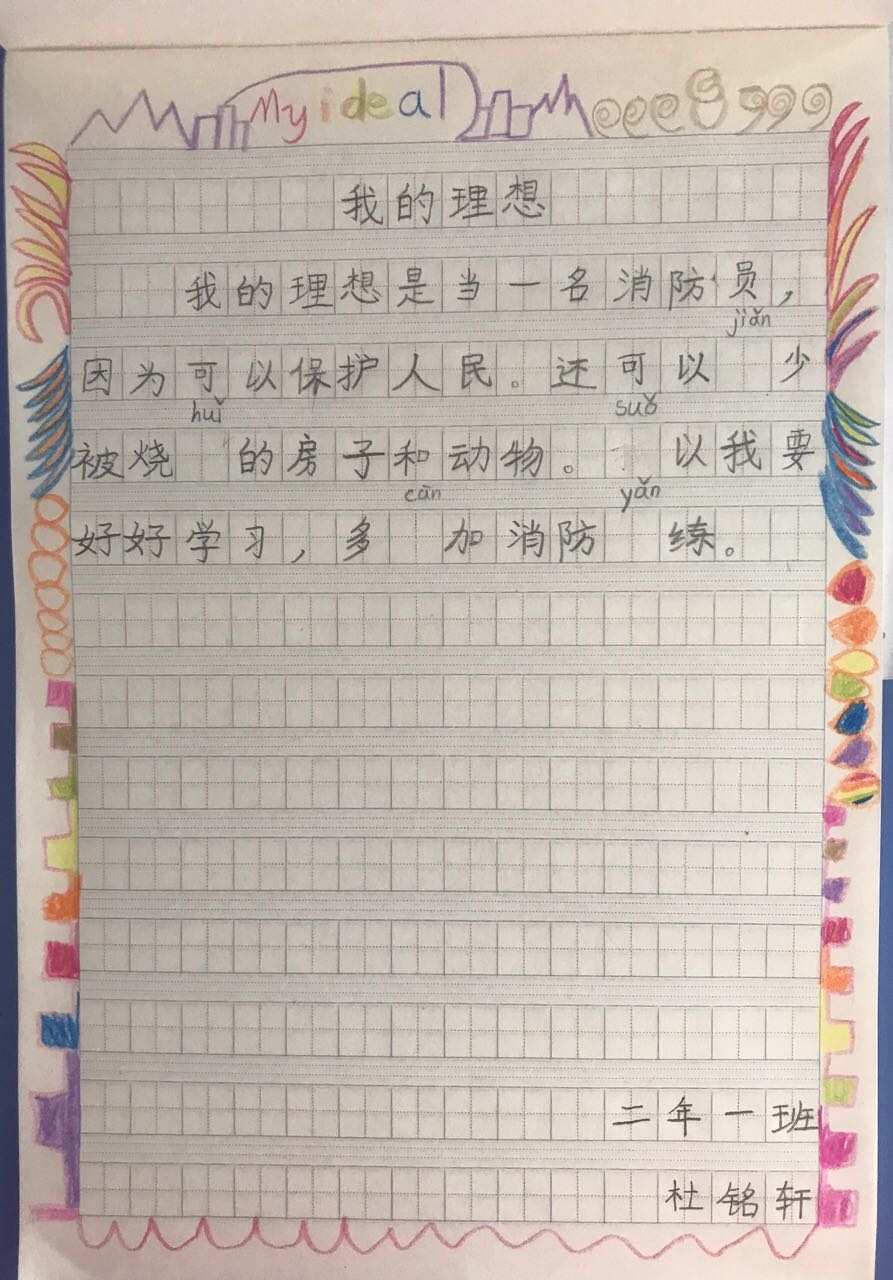 My ideal
我的理想
我的理想是当一名消防员,
jiǎn
因为可以保护人民。还可以 少
huǐ suǒ
被烧 的房子和动物。 以我要
cān yǎn
好好学习,多 加消防 练。
二年一班
杜铭轩